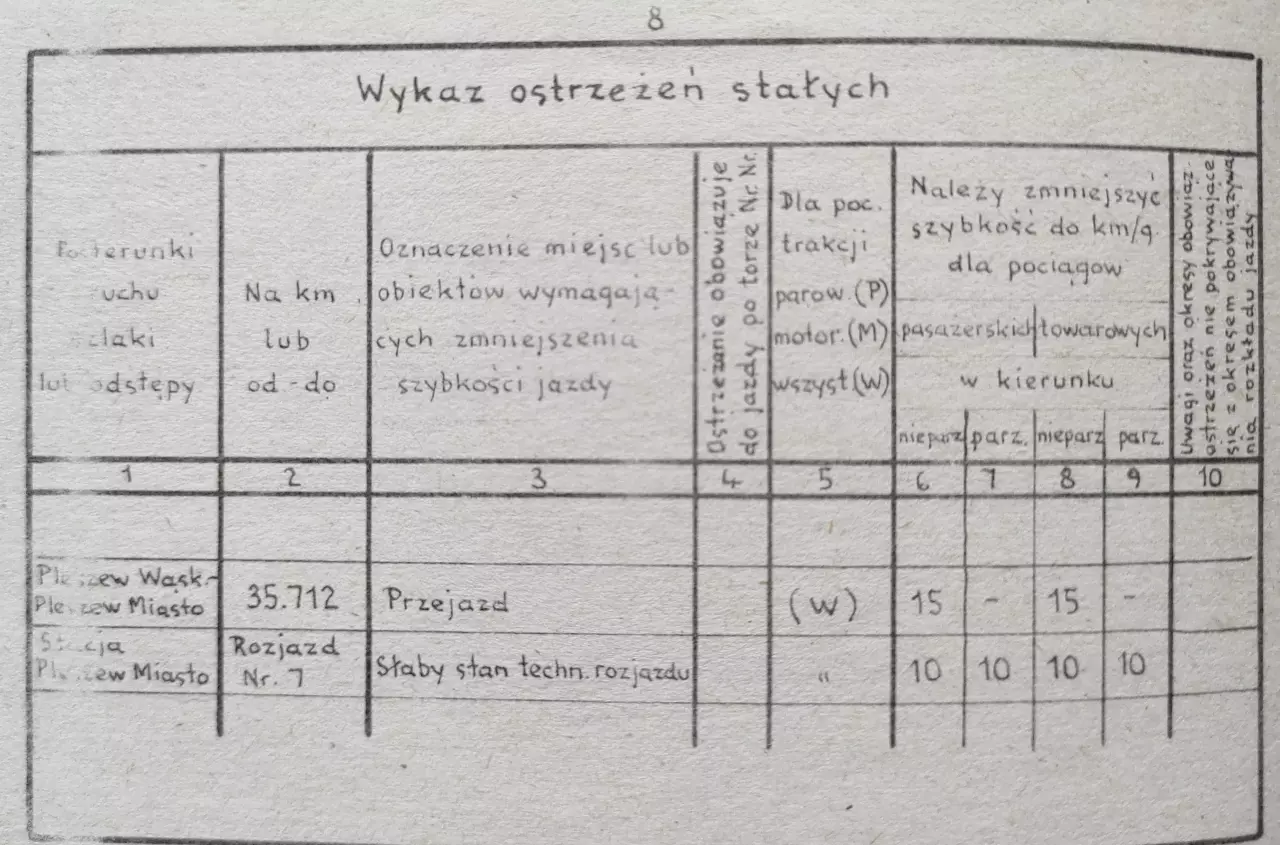 8
Wykaz ostrzeżeń stałych
uchu
lub odstępy
Na km
lub
od - do
Oznaczenie miejsc lub
obiektów wymagają-
cych zmniejszenia
szybkości jazdy
Ostrzeżanie obowiązuje
do jazdy po torze Nr. Nr.
Dla poc.
trakcji
parow. (P)
motor. (M)
wszyst (W)
Należy zmniejszyć
szybkość do km/g.
dla pociągow
pasażerskich towarowych
w kierunku
nieparz parz. nieparz parz.
Uwagi oraz okresy obowiąz.
ostrzeżeń nie pokrywające
się z okresem obowiązywa
nia rozkładu jazdy
1 2 3 4 5 6 7 8 9 10
Wąsk.-
Miasto
35.712
Przejazd
(W)
15 - 15 -
Miasto
Rozjazd
Nr. 7
Słaby stan techn. rozjazdu
"
10 10 10 10